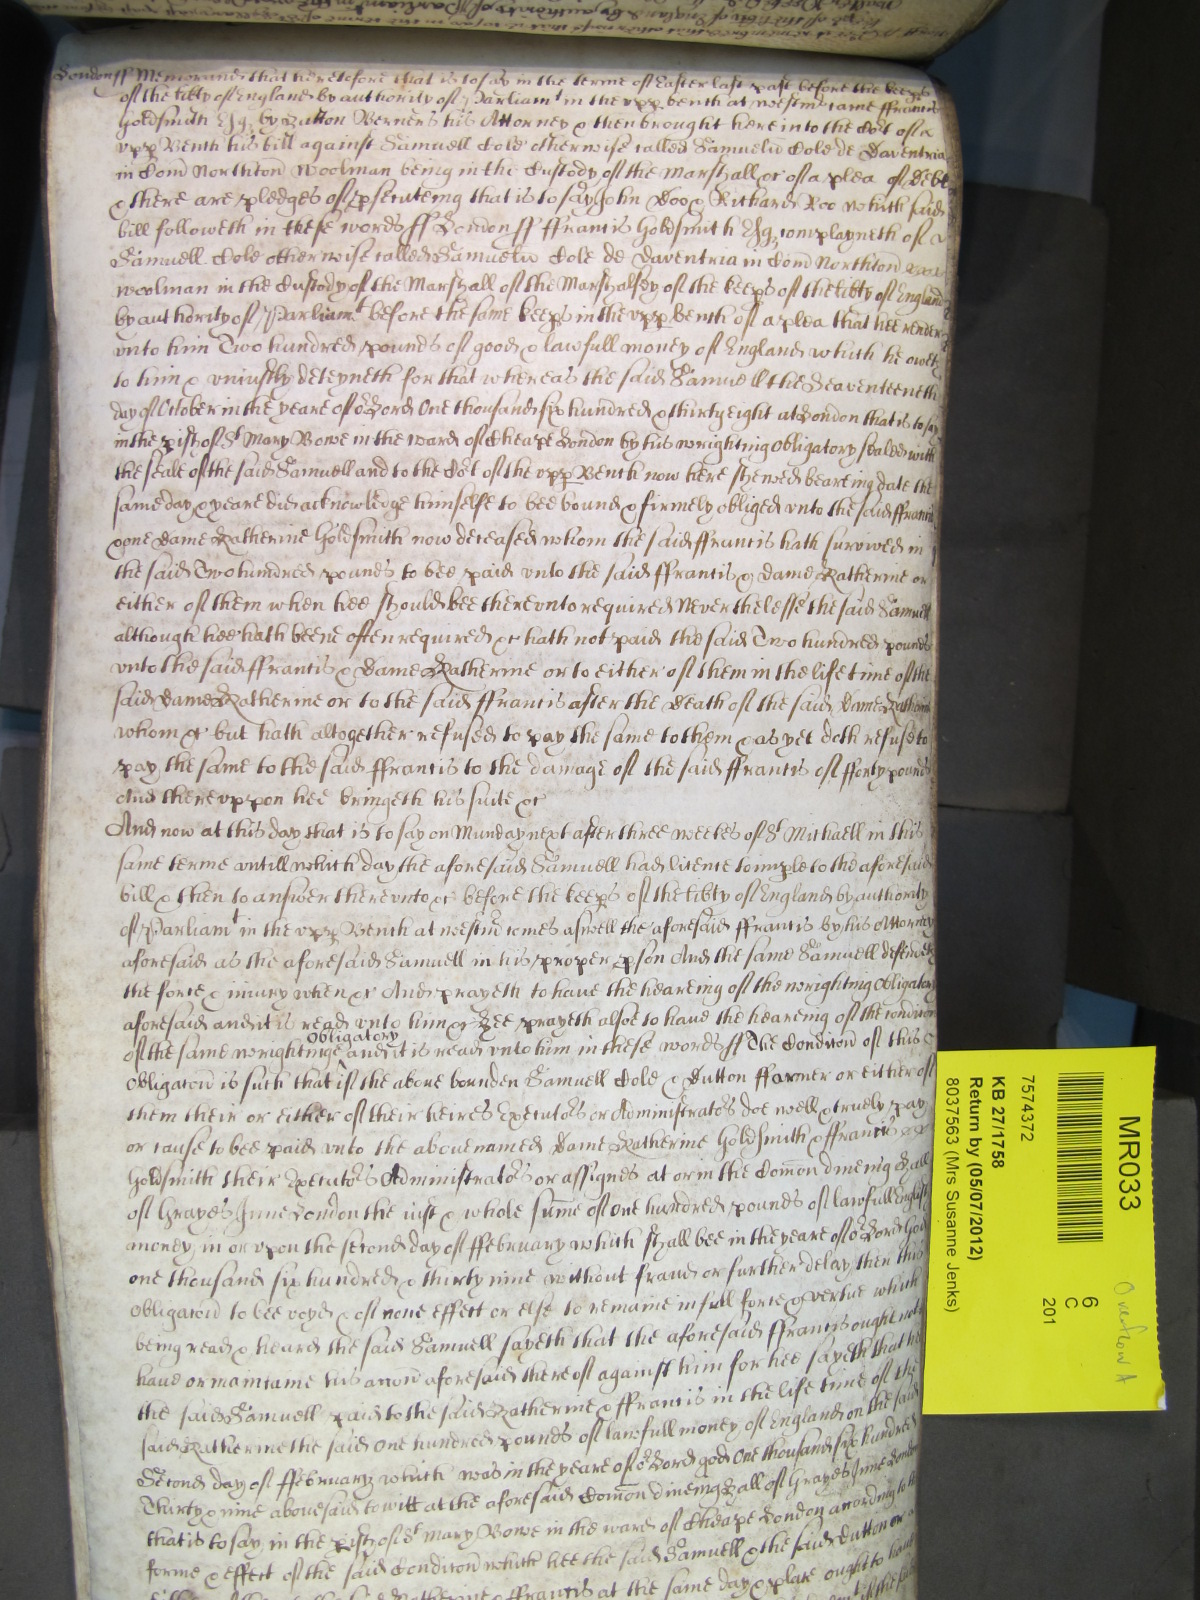 London ss Memorand that heretofore that is to say in the terme of Easter last past before the keeps
of the libty of England by authority of Parliamt in the upp bench at Westmr came ffrancis
Goldsmith Esq by Dutton Verners his Attorney & then brought here into the Cort of a
upp Bench his bill against Samuell Cole otherwise called Samueli Cole de Daventria
in Com Northton Woolman being in the Custody of the Marshall &c of a plea of debt
& there are pledges of psecuteing that is to say John Doo & Richard Roo which said
bill followeth in these words ss London ss ffrancis Goldsmith Esq complayneth of
Samuell Cole otherwise called Samueli Cole de Daventria in Com Northton
Woolman in the Custody of the Marshall of the Marshalsey of the keeps of the libty of England
by authority of Parliamt before the same keeps in the upp bench of a plea that hee render
unto him Two hundred pounds of good & lawfull money of England which he oweth
to him & uniustly deteyneth for that whereas the said Samuell the Seaventeenth
day of October in the yeare of or Lord One thousand six hundred & thirty eight at London that is to say
in the pish of St Mary Bowe in the ward of Cheape London by his wrighting Obligatory sealed with
the seale of the said Samuell and to the Cort of the upp Bench now here shewed beareing date the
same day & yeare did acknowledge himselfe to bee bound & firmely obliged unto the said ffrancis
& one Dame Katherine Goldsmith now deceased whom the said ffrancis hath survived in
the said Two hundred pounds to bee paid unto the said ffrancis & Dame Katherine or
either of them when hee should bee thereunto required Neverthelesse the said Samuell
although hee hath beene often required &c hath not paid the said Two hundred pounds
unto the said ffrancis & Dame Katherine or to either of them in the life time of the
said Dame Katherine or to the said ffrancis after the death of the said Dame Katherine
whom &c but hath altogether refused to pay the same to them & as yet doth refuse to
pay the same to the said ffrancis to the damage of the said ffrancis of fforty pounds
And thereuppon hee bringeth his suite &c
And now at this day that is to say on Munday next after three weekes of St Michaell in this
same terme untill which day the aforesaid Samuell had licence to imple to the aforesaid
bill & then to answer thereunto &c before the keeps of the libty of England by authority
of Parliamt in the upp Bench at Westmr comes aswell the aforesaid ffrancis by his Attorney
aforesaid as the aforesaid Samuell in his proper pson And the same Samuell defendeth
the force & iniury when &c And prayeth to have the heareing of the wrighting Obligatory
aforesaid and it is read unto him &c Hee prayeth alsoe to have the heareing of the condicon
of the same wrightinge Obligatory and it is read unto him in these words ss The Condicon of this
Obligacon is such that if the above bounden Samuell Cole & Dutton ffarmer or either of
them their or either of their heires Executors or Administrators doe well & truely pay
or cause to bee paid unto the above named Dame Katherine Goldsmith & ffrancis
Goldsmith their Executors Administrators or assignes at or in the Comon dineing Hall
of Grayes Inne London the iust & whole sume of one hundred pounds of lawfull English
money in or upon the second day of ffebruary which shall bee in the yeare of or Lord God
one thousand six hundred & thirty nine without fraud or further delay then this
obligacon to bee voyd & of none effect or else to remaine in full force & vertue which
being read & heard the said Samuell sayeth that the aforesaid ffrancis ought not
have or maintaine his accon aforesaid thereof against him for hee sayeth that hee
the said Samuell paid to the said Katherine & ffrancis in the life time of the
said Katherine the said one hundred pounds of lawfull money of England on the said
Second day of ffebruary which was in the yeare of or Lord god One thousand six hundred
Thirty & nine abovesaid to witt at the aforesaid Comon dineing Hall of Grayes Inne London
that is to say in the pish of St Mary Bowe in the ward of Cheape London according to the
forme & effect of the said Condicon which hee the said Samuell & the said Dutton or
Katherine & ffrancis at the same day & place ought to have
MR033
6
C
201
7574372
KB 27/1758
Return by (05/07/2012)
8037563 (Mrs Susanne Jenks)
Overflow A